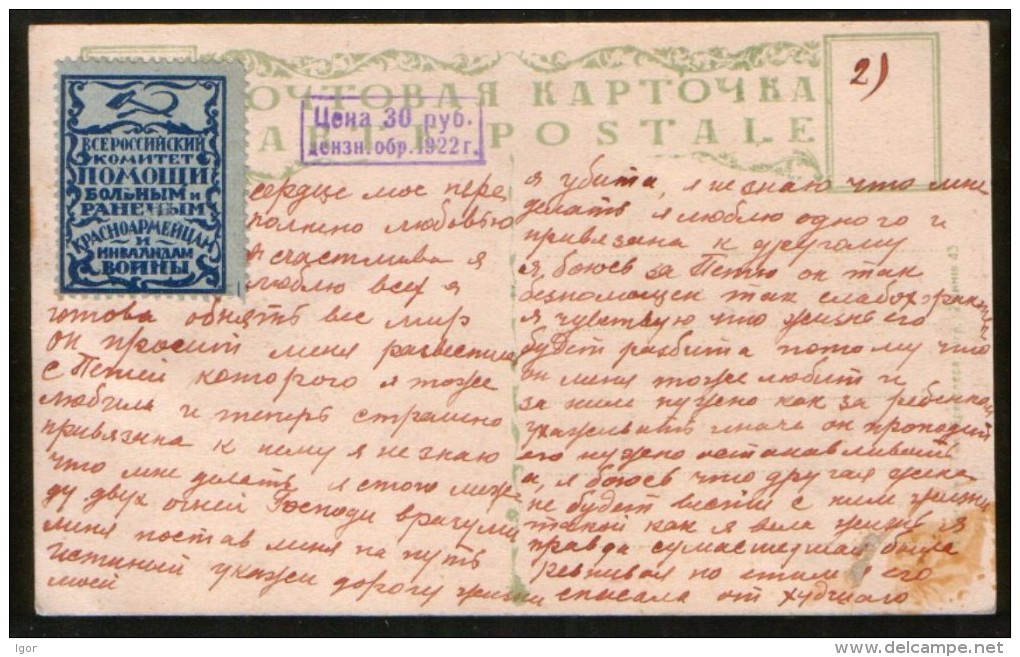 ПОЧТОВАЯ КАРТОЧКА
CARTE POSTALE
2)
ВСЕРОССИЙСКИЙ
КОМИТЕТ
ПОМОЩИ
БОЛЬНЫМ И
РАНЕНЫМ
КРАСНОАРМЕЙЦАМ
И
ИНВАЛИДАМ
ВОЙНЫ
Цена 30 руб.
дензн. обр. 1922 г.
сердце мое пере
полнено любовью
я счастлива я
люблю всех я
готова обнять вес мир
он просит меня развестись
с Петей которого я тоже
любила и теперь страшно
привязана к нему я не знаю
что мне делать я стою меж
ду двух огней Господи вразуми
меня постав меня на путь
истиный укажи дорогу жизни
моей
я убита, я не знаю что мне
делать я люблю одного и
привязана к другому
я, боюсь за Петю он так
безпомощен так слабохарак
я чувствую что жизнь его
будет разбита потому что
он меня тоже любит и
за ним нужно как за ребенком
ухаживать иначе он пропадит
его нужно останавливать
а, я боюсь что другая жена
не будет вести с ним жизни
такой как я вела
правда сумасшедшая была
ревнивая но этим я его
спасала от худшаго
Igor
delcampe.net